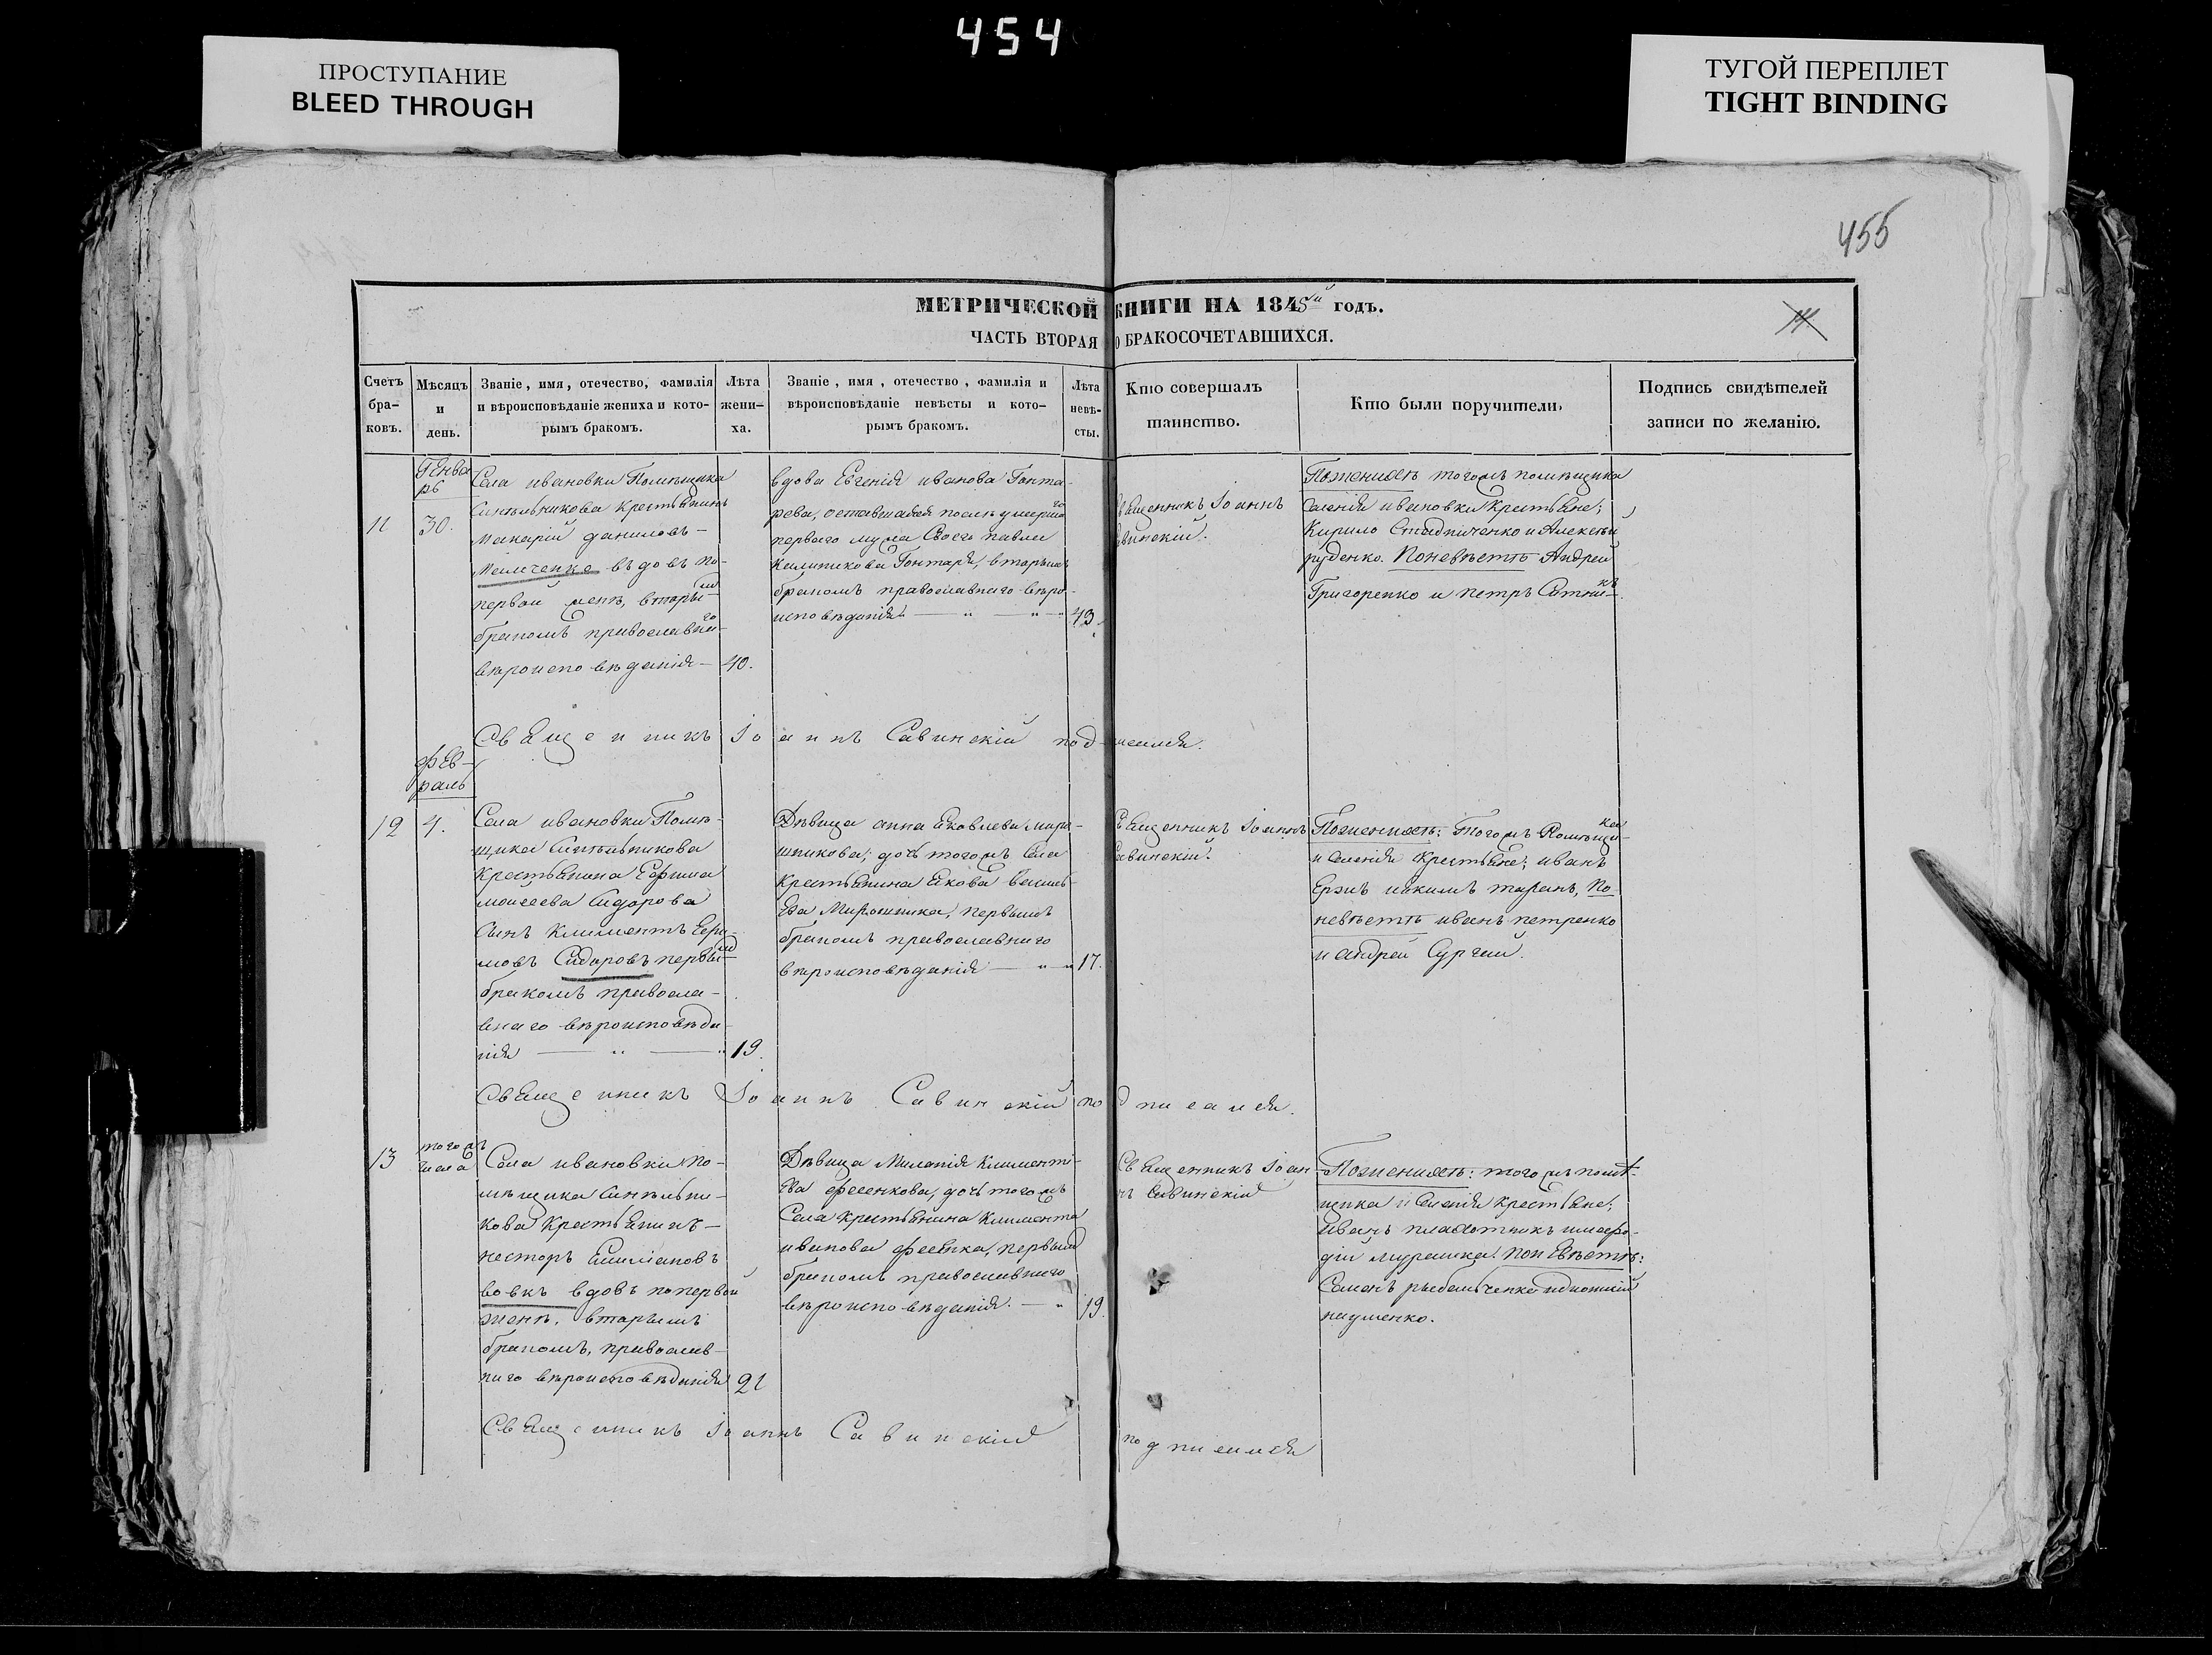 454
ПРОСТУПАНИЕ
BLEED THROUGH
ТУГОЙ ПЕРЕПЛЕТ
TIGHT BINDING
455
МЕТРИЧЕСКОЙ КНИГИ НА 1845й годъ.
ЧАСТЬ ВТОРАЯ О БРАКОСОЧЕТАВШИХСЯ.
Счетъ
бра-
ковъ.
Мѣсяцъ
и
день.
Званіе, имя, отечество, фамилія
и вѣроисповѣданіе жениха и кото-
рымъ бракомъ.
Лѣта
жени-
ха.
Званіе, имя, отечество, фамилія и
вѣроисповѣданіе невѣсты и кото-
рымъ бракомъ.
Лѣта
невѣ-
сты.
Кто совершалъ
таинство.
Кто были поручители.
Подпись свидѣтелей
записи по желанію.
11
Генва
рь
30.
Села ивановки Помѣщика
Синельникова Крестьянинъ
Макарій даниловъ-
Мельченко вдовъ по-
первой женѣ, вторым
бракомъ православнаго
вѣроисповѣданія- 40.
вдова Евгенія иванова Гонта-
рева, оставшаяся послѣ умершаго
перваго мужа Своего павла
Калиникова Гонтаря, вторымъ
бракомъ православнаго вѣро-
исповѣданія. 43.
Священникъ Іоаннъ
Савинскій.
По женихѣ тогожъ помѣщика
селенія ивановки Крестьяне;
Кирило Стадниченко и Алексѣй
руденко. По невѣстѣ Андрей
Григоренко и петръ Сотникъ.
Священникъ Іоаннъ Савинскій подписался.
12
Фев-
раль
4.
Села ивановки Помѣ-
щика Синельникова
Крестьянина Ефима
моисеева Сидорова
Сынъ Климентъ Ефи-
мовъ Сидоровъ первым
бракомъ правосла-
внаго вѣроисповѣда-
нія 19.
Дѣвица анна Яковлева Миро-
шникова; дочь тогожъ Села
Крестьянина Якова Василь-
ева Мирошника, первымъ
бракомъ православнаго
вѣроисповѣданія 17.
Священникъ Іоаннъ
Савинскій.
По женихѣ: Тогожъ Помѣщика
и селенія Крестьяне; иванъ
иакимъ таранъ, По
невѣстѣ иванъ петренко
и андрей Сургай.
Священникъ Іоаннъ Савинскій подписался.
13
тогожъ
числа
Села ивановки по-
мѣщика Синельни-
кова Крестьянинъ-
несторъ Емиліановъ
вовкъ вдовъ по первой
женѣ, вторымъ
бракомъ, православ-
наго вѣроисповѣданія 21
Дѣвица Миланія Климентi-
ева фесенкова, дочь тогожъ
Села крестьянина Климента
иванова фесенка, первым
бракомъ православнаго
вѣроисповѣданія. 19.
Священникъ Іоан-
нъ Савинскій
По женихѣ: тогожъ помѣ-
щика и Селенія крестьяне;
иванъ
мурашка. по невѣстѣ:
Семенъ рыбальченко
науменко.
Священникъ Іоаннъ Савинскій подписался